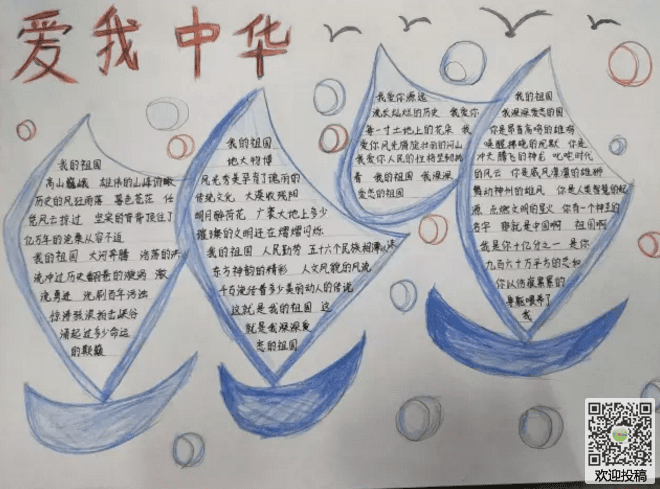 爱我中华
我的祖国
高山巍峨 雄伟的山峰俯瞰
历史的风狂雨落 暮色苍茫 任
凭风云掠过 坚实的脊背顶住了
亿万年的沧桑从容不迫
我的祖国 大河奔腾 浩荡的洪
流冲过历史翻卷的漩涡 激
流勇进 洗刷百年污浊
惊涛骇浪拍击峡谷
涌起过多少命运
的颠簸
我的祖国
地大物博
风光秀美孕育了瑰丽的
传统文化 大漠收残阳
明月醉荷花 广袤大地上多少
璀璨的文明还在熠熠闪烁
我的祖国 人民勤劳 五十六个民族相濡以沫
东方神韵的精彩 人文风貌的风流
千百流传着多少美丽动人的传说
这就是我的祖国 这
就是我深深爱
恋的祖国
我爱你源远
流长灿烂的历史 我爱你
每一寸土地上的花朵 我
爱你风光旖旎壮丽的河山
我爱你人民的性格坚韧执
着 我的祖国 我深深
爱恋的祖国
我的祖国
我深深爱恋的国
你是昂首高鸣的雄鸡
唤醒拂晓的沉默 你是
冲天腾飞的神龙 叱咤时代
的风云 你是威风凛凛的雄狮
舞动神州的雄风 你是人类智慧的起
源 点燃文明的星火 你有一个神圣的
名字 那就是中国啊 祖国啊
我是你十亿分之一 是你
九百六十万平方的总和
你以伤痕累累的
乳房喂养了
我
欢迎投稿